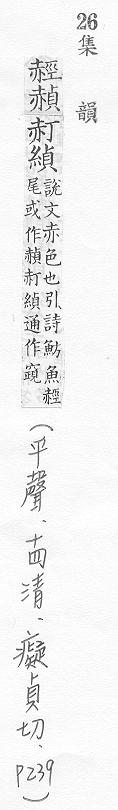 26集韻
䞓赬𧹛緽
說文赤色也引詩魴魚䞓
尾或作赬𧹛緽通作竀
(平聲、十四清、癡貞切、P239)